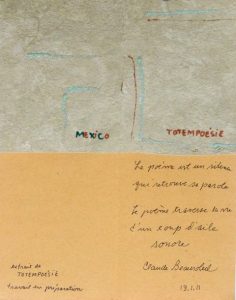 MEXICO
TOTEMPOÉSIE
Le poème est un silence
qui retrouve sa parole
Le poème traverse la vie
d'un coup d'aile
sonore
Claude Beausoleil
extrait de
TOTEMPOÉSIE
travail en préparation